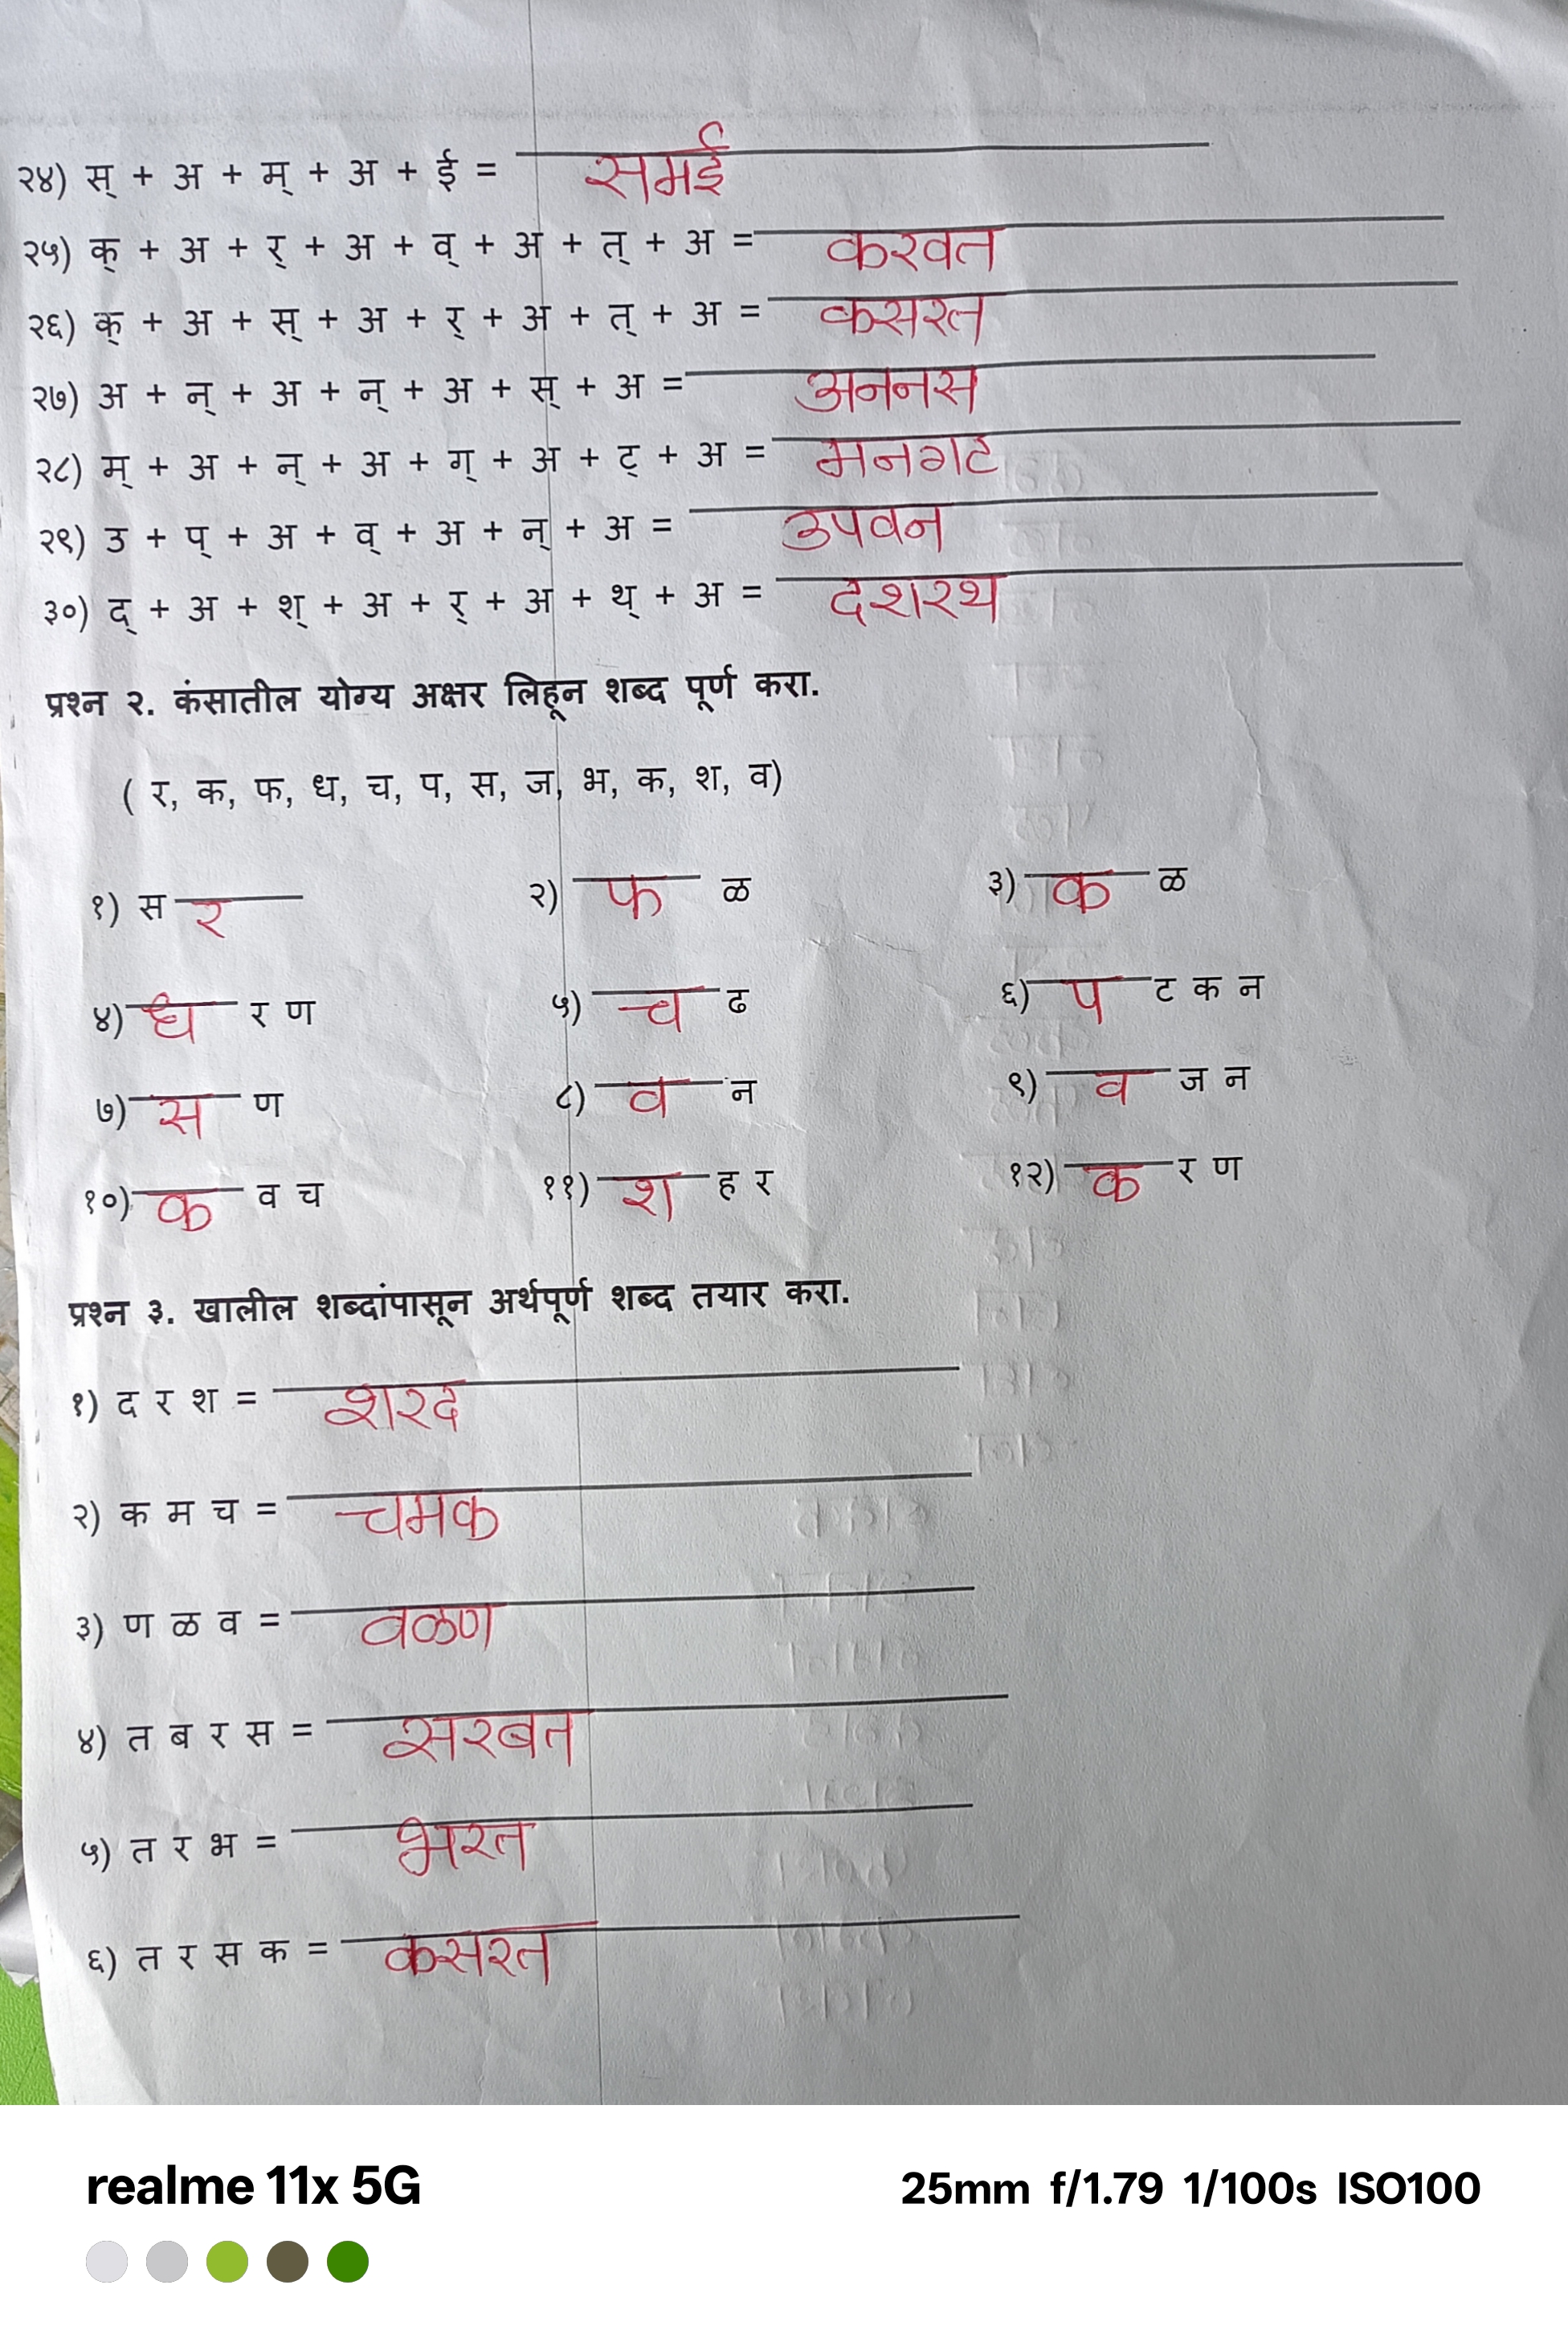 २४) स् + अ + म् + अ + ई = समई
२५) क् + अ + र् + अ + व् + अ + त् + अ = करवत
२६) क् + अ + स् + अ + र् + अ + त् + अ = कसरत
२७) अ + न् + अ + न् + अ + स् + अ = अननस
२८) म् + अ + न् + अ + ग् + अ + ट् + अ = मनगट
२९) उ + प् + अ + व् + अ + न् + अ = उपवन
३०) द् + अ + श् + अ + र् + अ + थ् + अ = दशरथ
प्रश्न २. कंसातील योग्य अक्षर लिहून शब्द पूर्ण करा.
( र, क, फ, ध, च, प, स, ज, भ, क, श, व)
१) स र २) फ ळ ३) क ळ
४) ध र ण ५) च ढ ६) प ट क न
७) स ण ८) व न ९) व ज न
१०) क व च ११) श ह र १२) क र ण
प्रश्न ३. खालील शब्दांपासून अर्थपूर्ण शब्द तयार करा.
१) द र श = शरद
२) क म च = चमक
३) ण ळ व = वळण
४) त ब र स = सरबत
५) त र भ = भरत
६) त र स क = कसरत
realme 11x 5G 25mm f/1.79 1/100s ISO100